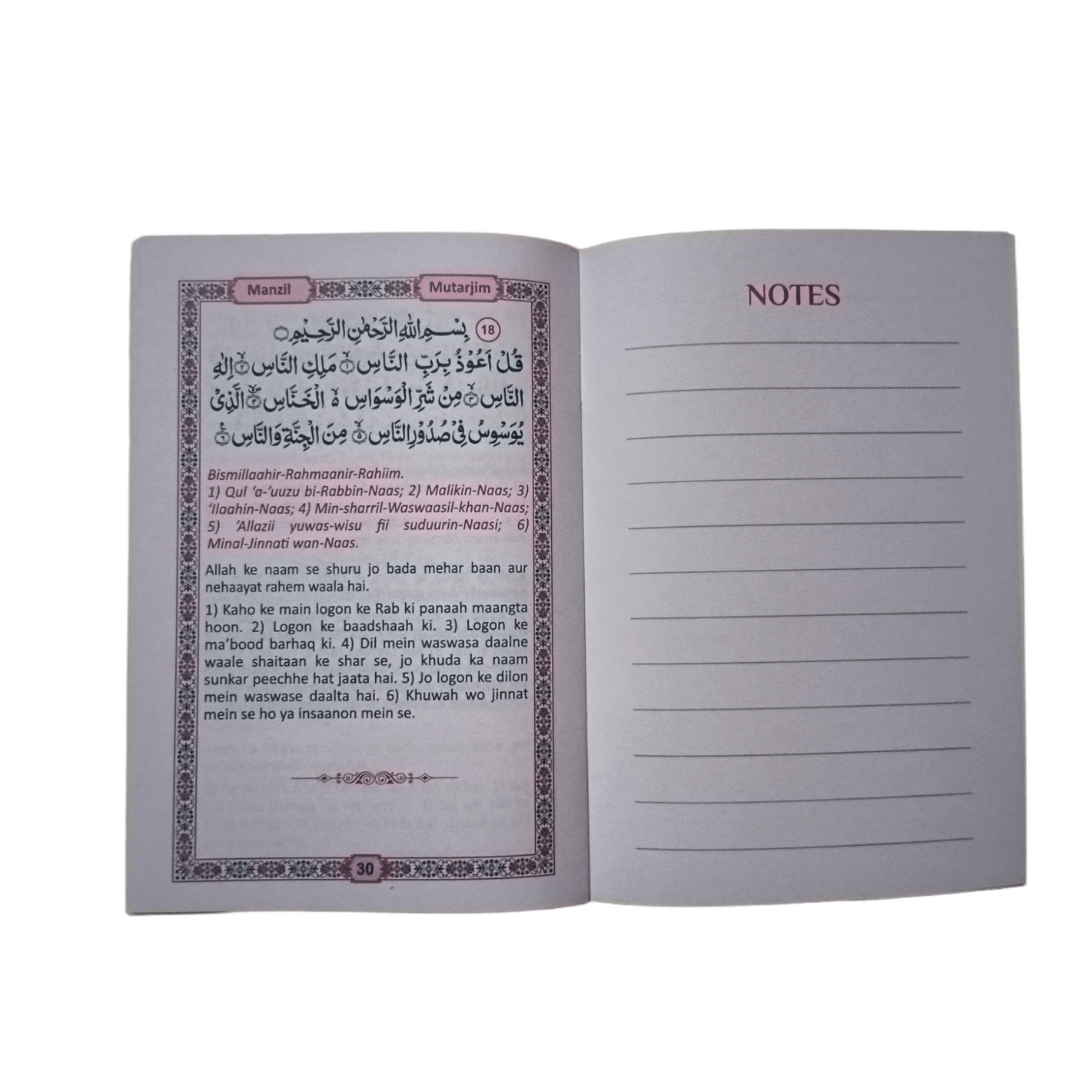 Manzil Mutarjim
بِسْمِ اللهِ الرَّحْمٰنِ الرَّحِيْمِ 18
قُلْ اَعُوْذُ بِرَبِّ النَّاسِ ۝۱ مَلِكِ النَّاسِ ۝۲ اِلٰهِ
النَّاسِ ۝۳ مِنْ شَرِّ الْوَسْوَاسِ ۙ الْخَنَّاسِ ۝۴ الَّذِىْ
يُوَسْوِسُ فِىْ صُدُوْرِ النَّاسِ ۝۵ مِنَ الْجِنَّةِ وَالنَّاسِ ۝۶
Bismillaahir-Rahmaanir-Rahiim.
1) Qul 'a-'uuzu bi-Rabbin-Naas; 2) Malikin-Naas; 3)
'Ilaahin-Naas; 4) Min-sharril-Waswaasil-khan-Naas;
5) 'Allazii yuwas-wisu fii suduurin-Naasi; 6)
Minal-Jinnati wan-Naas.
Allah ke naam se shuru jo bada mehar baan aur
nehaayat rahem waala hai.
1) Kaho ke main logon ke Rab ki panaah maangta
hoon. 2) Logon ke baadshaah ki. 3) Logon ke
ma'bood barhaq ki. 4) Dil mein waswasa daalne
waale shaitaan ke shar se, jo khuda ka naam
sunkar peechhe hat jaata hai. 5) Jo logon ke dilon
mein waswase daalta hai. 6) Khuwah wo jinnat
mein se ho ya insaanon mein se.
30
NOTES